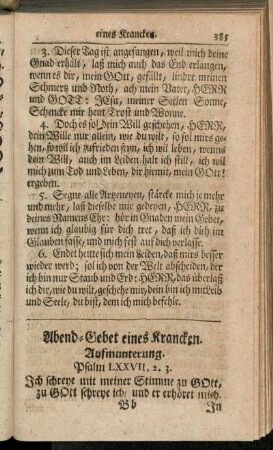 eines Krancken. 385
3. Dieser Tag ist angefangen, weil mich deine
Gnad erhält, laß mich auch das End erlangen,
wenn es dir, mein GOtt, gefällt, lindre meinen
Schmertz und Noth, ach mein Vater, HERR
und GOTT: JEsu, meiner Seelen Sonne,
Schencke mir heut Trost und Wonne.
4. Doch es sol dein Will geschehen, HERR,
dein Wille mir allein, wie du wilt, so sol mirs gehen,
so wil ich zufrieden seyn, ich wil leben, wenns
dein Will, auch im Leiden halt ich still, ich wil
mich zum Tod und Leben, dir hiemit, mein GOtt!
ergeben.
5. Segne alle Artzeneyen, stärcke mich je mehr
und mehr, laß dieselbe mir gedeyen, HERR, zu
deines Namens Ehr: hör in Gnaden mein Gebet,
wenn ich gläubig für dich tret, daß ich dich im
Glauben fasse, und mich fest auf dich verlasse.
6. Endet heute sich mein Leiden, daß mirs besser
wieder werd; sol ich von der Welt abscheiden, der
ich bin nur Staub und Erd: HERR, das überlaß
ich dir, wie du wilt, geschehe mir, dein bin ich mit Leib
und Seele, du bist, dem ich mich befehle.
Abend-Gebet eines Krancken.
Aufmunterung.
Psalm LXXVII, 2. 3.
Ich schreye mit meiner Stimme zu GOtt,
zu GOtt schreye ich, und er erhöret mich.
Bb In